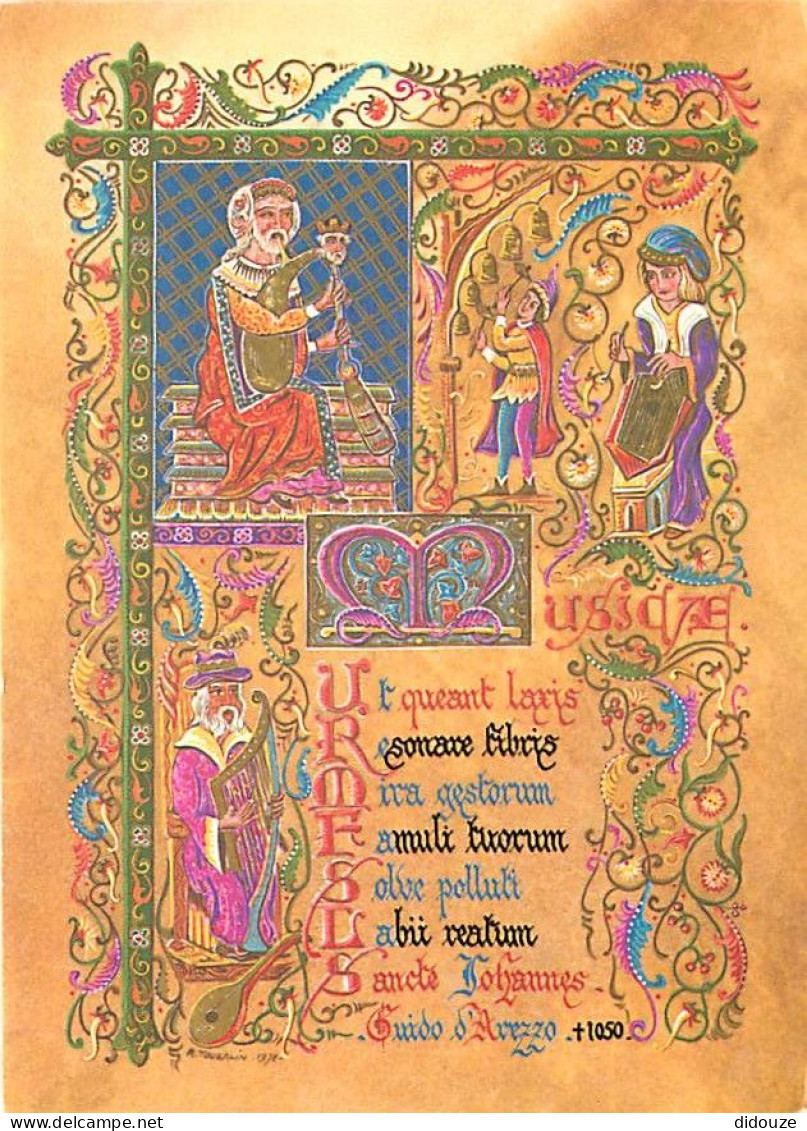 MUSICAE.
Ut queant laxis
Resonare fibris
Mira gestorum
Famuli tuorum
Solve polluti
Labii reatum
Sancte Iohannes.
Guido d'Arezzo †1050
delcampe.net
didouze